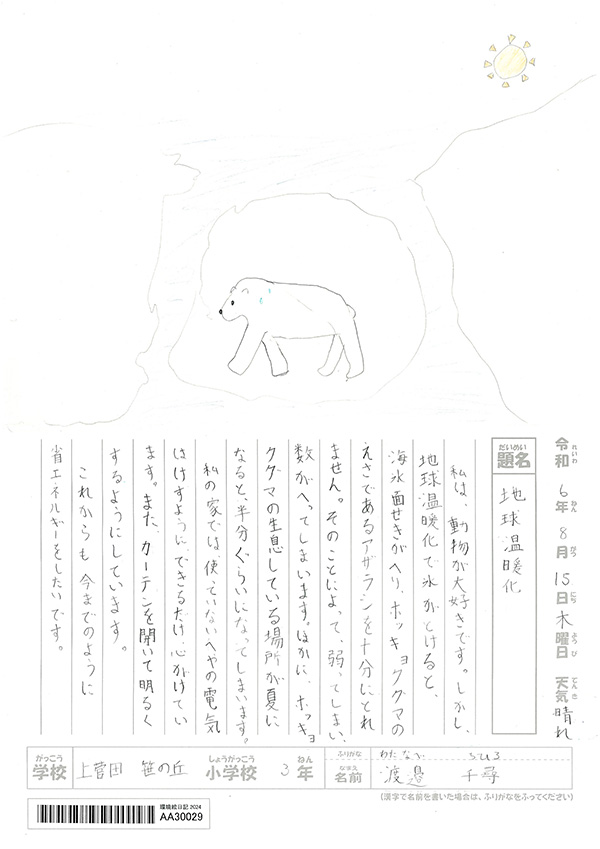 令和 6年 8月 15日 木曜日 天気 晴れ
れいわ ねん がつ にち ようび てんき
だいめい
題名 地球温暖化
私は、動物が大好きです。しかし、
地球温暖化で氷がとけると、
海氷面せきがへり、ホッキョクグマの
えさであるアザラシを十分にとれ
ません。そのことによって、弱ってしまい、
数がへってしまいます。ほかに、ホッキョ
クグマの生息している場所が夏に
なると、半分ぐらいになってしまいます。
私の家では、使っていないへやの電気
はけすように、できるだけ、心がけてい
ます。また、カーテンを開いて明るく
するようにしています。
これからも今までのように
省エネルギーをしたいです。
がっこう しょうがっこう ねん ふりがな わたなべ ちひろ
学校 上菅田 笹の丘 小学校 3年 なまえ 名前 渡邉 千尋
(漢字で名前を書いた場合は、ふりがなをふってください)
環境絵日記 2024
AA30029